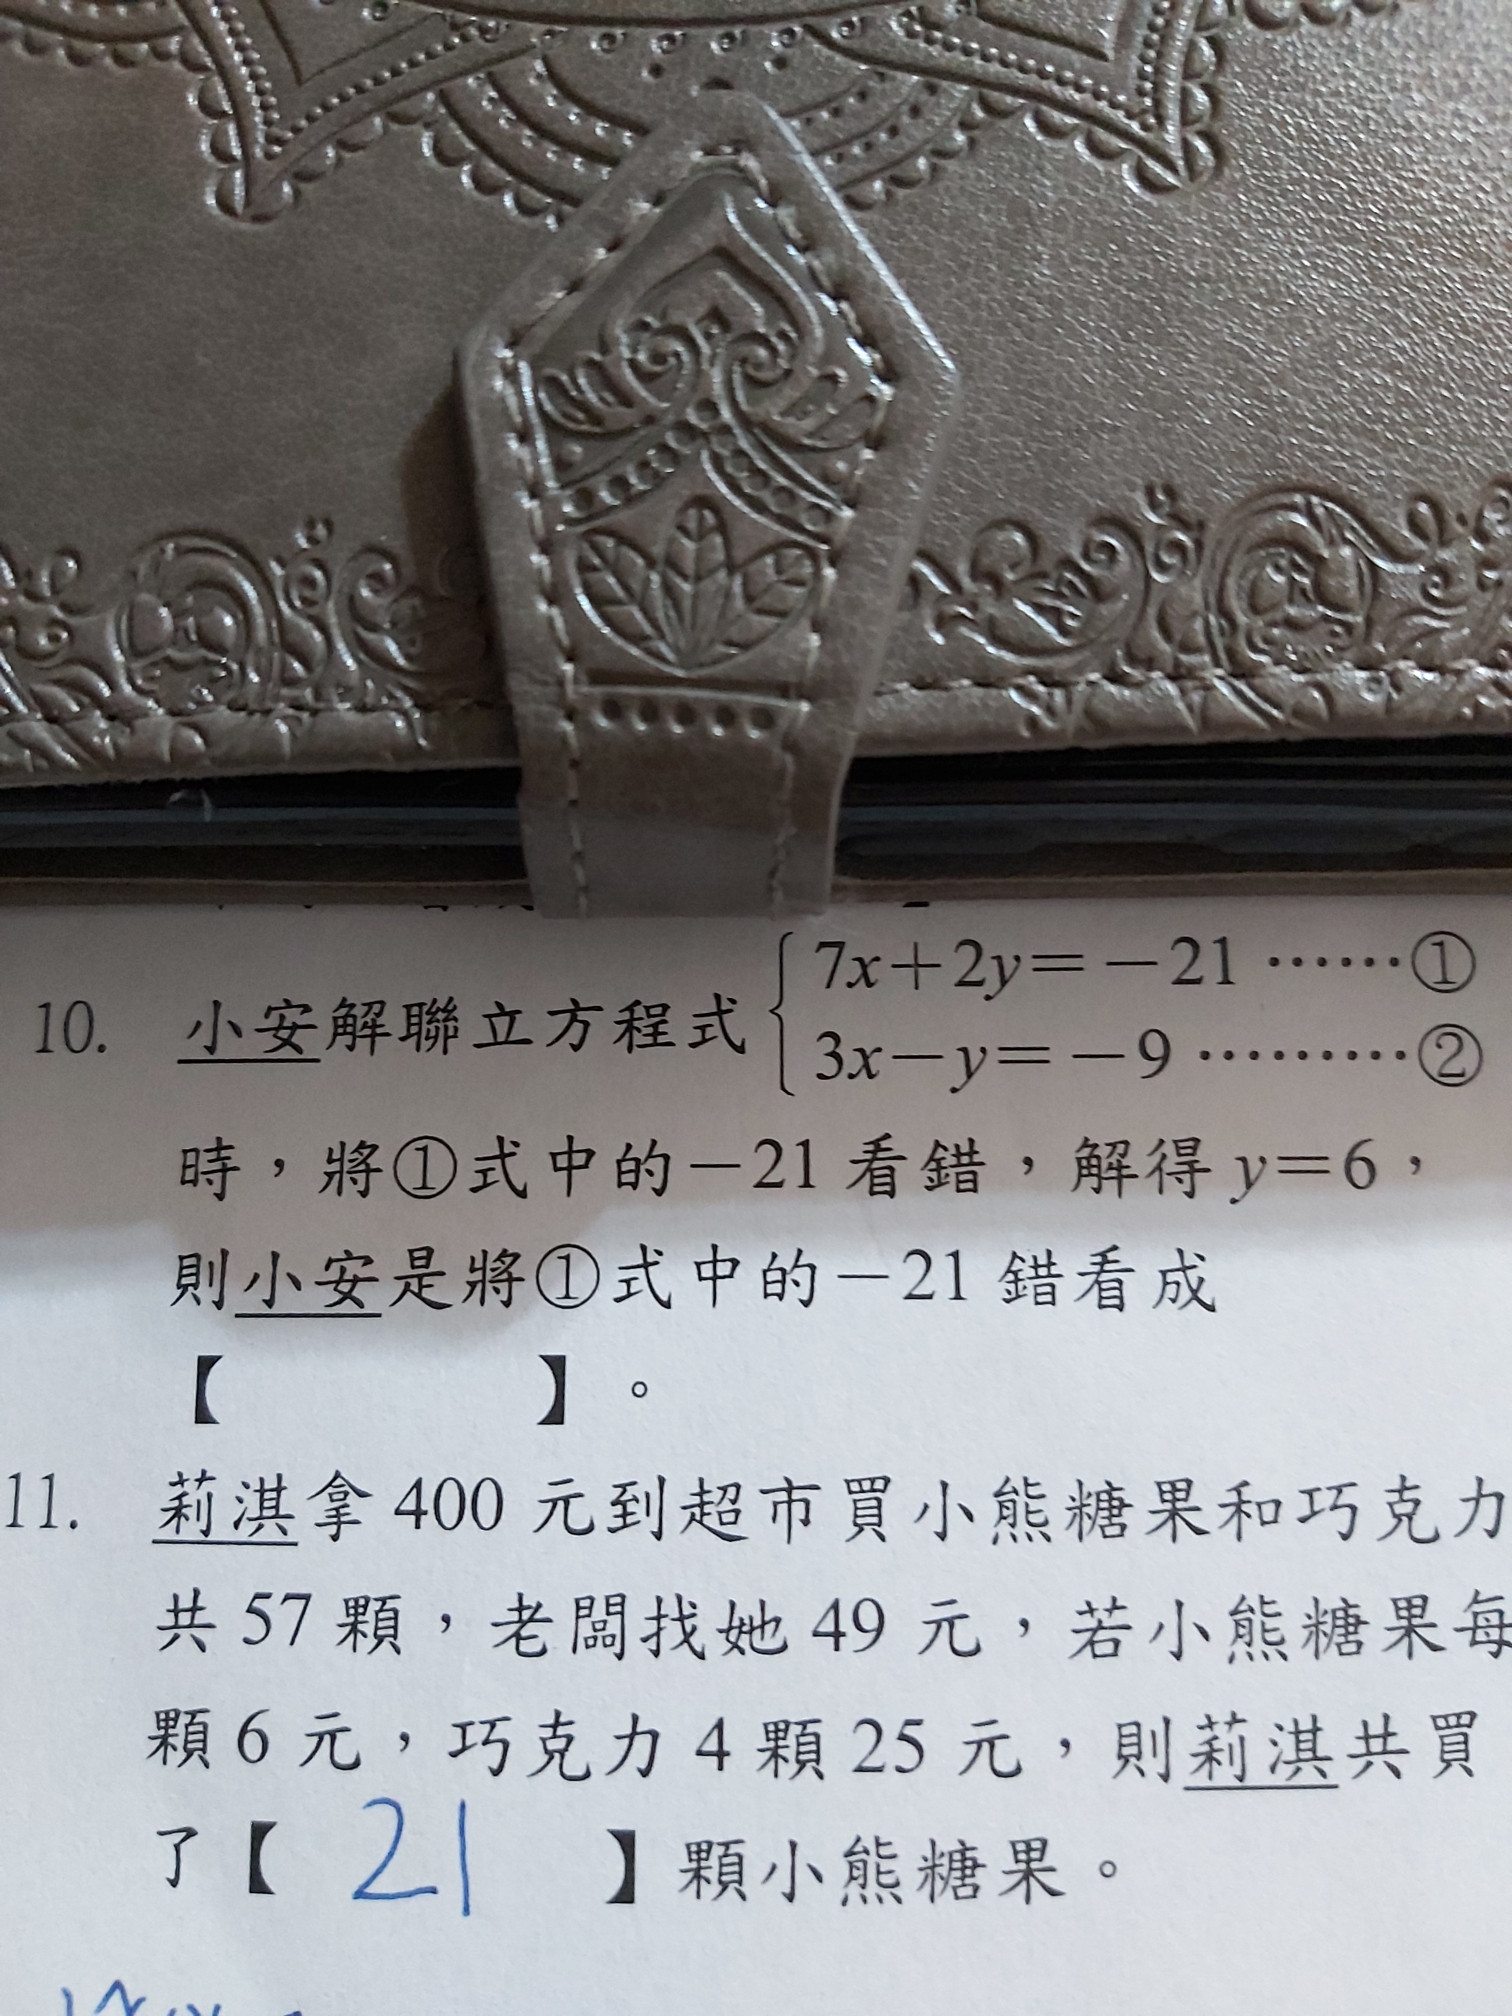 10. 小安解聯立方程式 { 7x+2y=-21 ……①
3x-y=-9 ………②
時，將①式中的-21 看錯，解得 y=6，
則小安是將①式中的-21 錯看成
【 】。
11. 莉淇拿 400 元到超市買小熊糖果和巧克力
共 57 顆，老闆找她 49 元，若小熊糖果每
顆 6 元，巧克力 4 顆 25 元，則莉淇共買
了【 21 】顆小熊糖果。